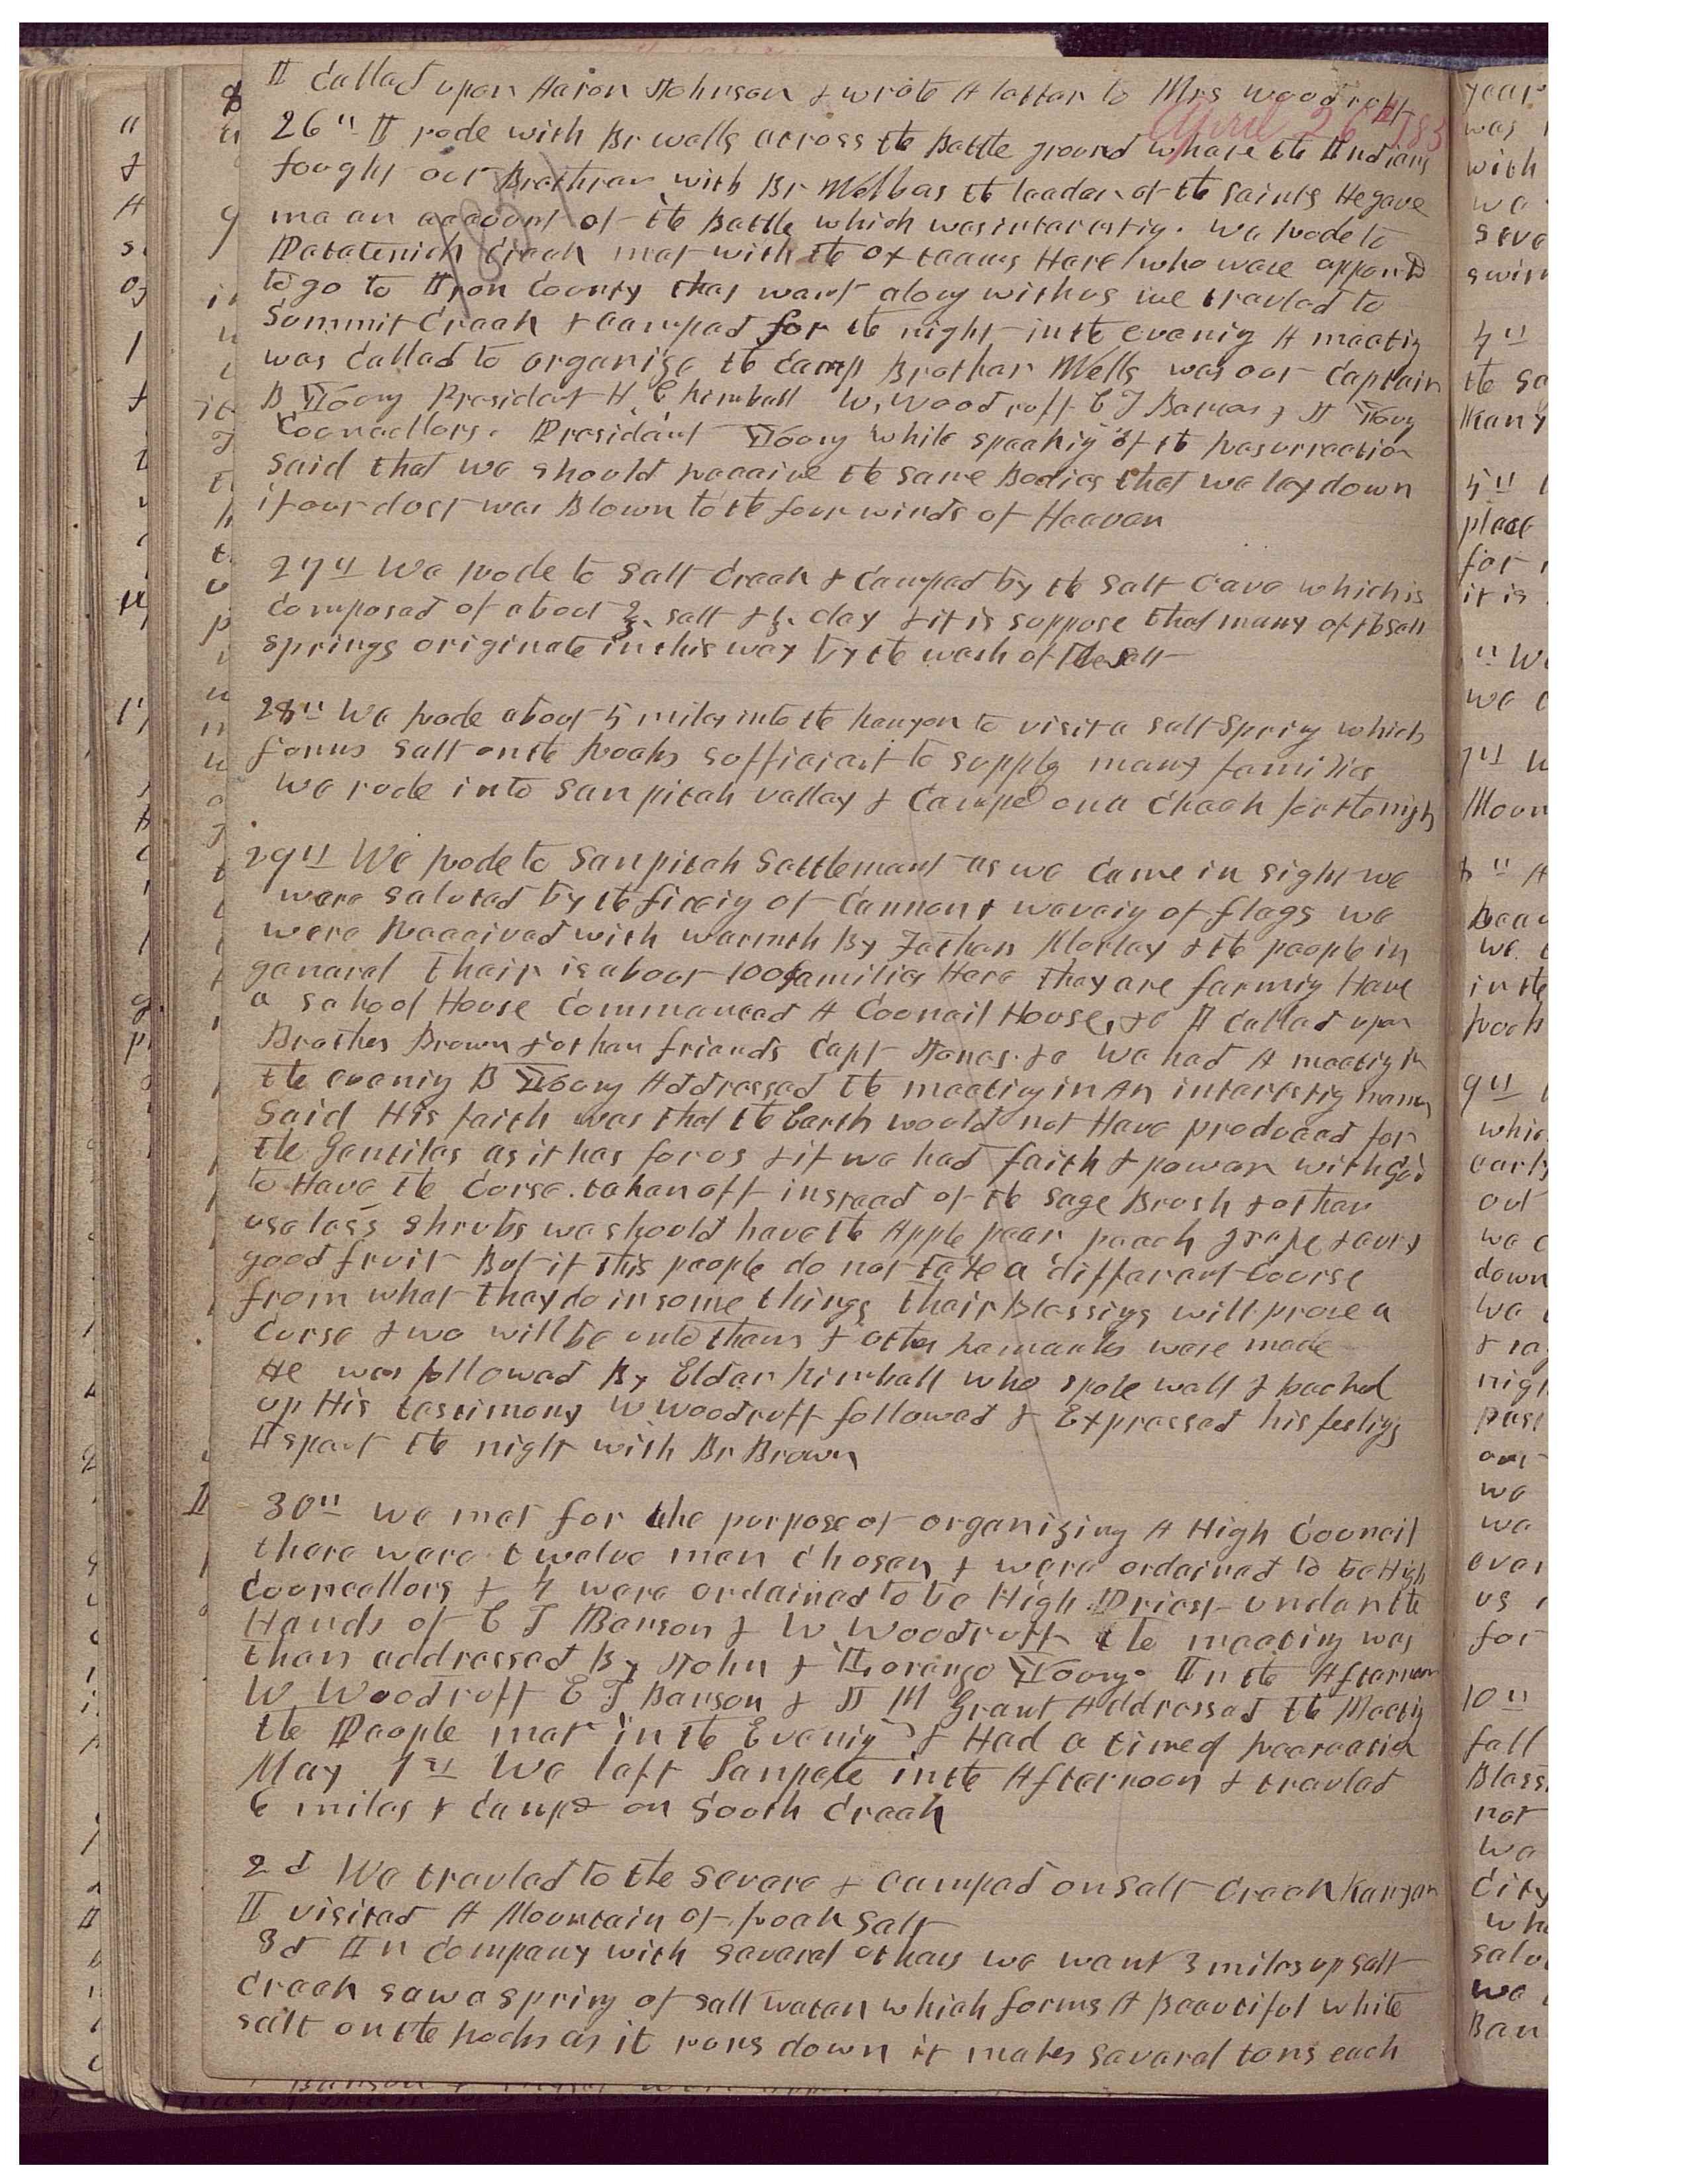 I Called upon Aaron Johnson & wrote A letter to Mrs Woodruff
April 26th 185
26th I rode with Br wells across the Battle ground whare the Indians
fought our Brethren with Br Wells as the leader of the Saints He gave
me an account of the Battle which was interesting. We rode to
Petetenich Creek met with the ox teams Here who were appointd
to go to Iron County that went along with us we traveled to
Summit Creek & camped for the night in the evenig A meetig
was Called to organize the Camp Brother Wells was our Captain
B Young President H C Kimball W, Woodruff E T Benson & J Young
Councellors. President Young while speakig of the resurrection
said that we should receive the same Bodies that we lay down
if our dust was Blown to the four winds of Heaven
27th We rode to Salt Creek & Camped by the Salt Cave which is
Composed of about 2/3 salt & 1/3 clay & it is suppose that many of the salt
springs originate in this way by the wash of the salt
28th We rode about 5 miles into the kanyon to visit a salt Spring which
forms salt on the rocks sufficient to supply many families
we rode into San pitch valley & Campd on a Creek for the night
29th We rode to Sanpitch Settlement as we Came in sight we
were saluted by the fireig of Cannon & waveig of flags we
were Received with warmth By Father Morley & the people in
general their is about 100 families Here they are farmig Have
a school House Commenced A Council House, &c I Called upon
Brother Brown & other friends Capt Jones. &c We had A meetig in
the evenig B Young Addressed the meetig in An interestig manner
Said His faith was that the Earth would not Have produced for
the Gentiles as it has for us & if we had faith & power with God
to Have the Curse taken off instead of the sage Brush & other
useless shrubs we should have the Apple pear peach grape & evry
good fruit But if this people do not take a different Course
from what they do in some things their Blessings will prove a
Curse & wo will be unto them & other remarks were made
He was followed By Elder Kimball who spoke well & backed
up His testimony W Woodruff followed & Expressed his feelings
I spent the night with Br Brown
30th we met for the purpose of organizing A High Council
there were twelve men Chosen & were ordained to be High
Councellors & 4 were ordained to be High Priest under the
Hands of E T Benson & W Woodruff the meeting was
then addressed By John & Lorenzo Young. In the Afternoon
W Woodruff E T Benson & J M Grant Addressed the Meetig
the People met in the Evenig & Had a time of recreation
May 1st We left Sanpete in the Afternoon & traveled
6 miles & Campd on South Creek
2d We traveled to the Severe & camped on Salt Creek Kanyon
I visited A Mountain of rock Salt
3d In Company with several others we went 3 miles up salt
Creek saw a spring of salt water which forms A Beautiful white
salt on the rocks as it runs down it makes several tons each